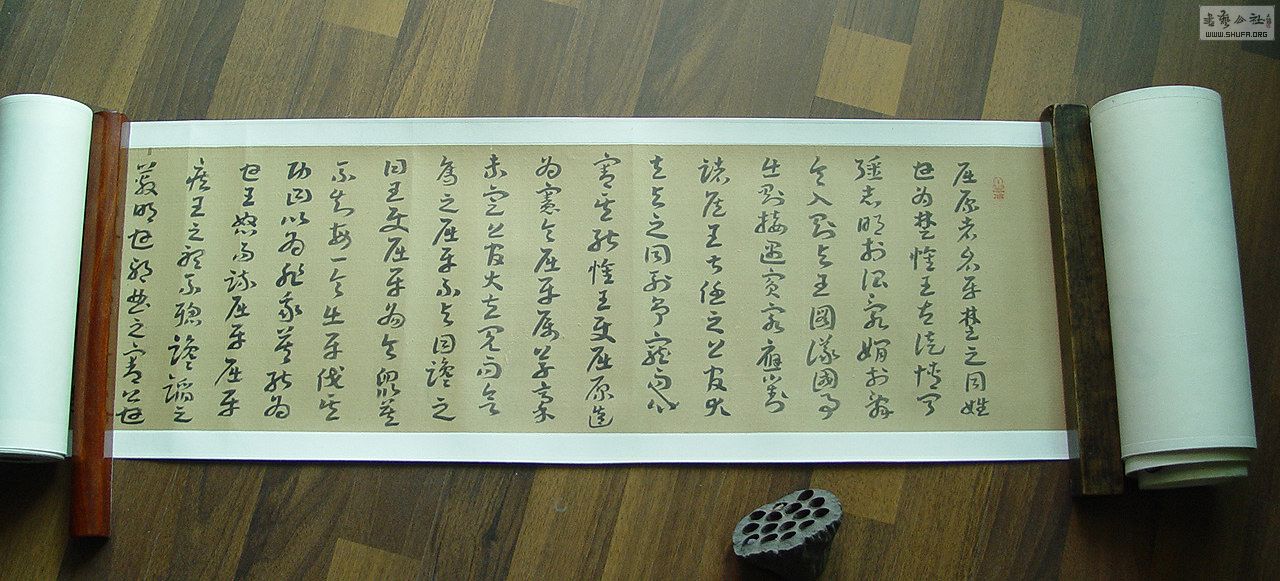 屈原者名平楚之同姓
也為楚懷王左徒博聞
彊志明於治亂嫺於辭
令入則與王圖議國事
出則接遇賓客應對
諸侯王甚任之上官大
夫與之同列爭寵而心
害其能懷王使屈原造
為憲令屈平屬草稾
未定上官大夫見而欲
奪之屈平不與因讒之
曰王使屈平為令眾莫
不知每一令出平伐其
功曰以為非我莫能為
也王怒而疏屈平屈平
疾王之聽不聰讒諂之
蔽明也邪曲之害公也
書藝公社
WWW.SHUFA.ORG